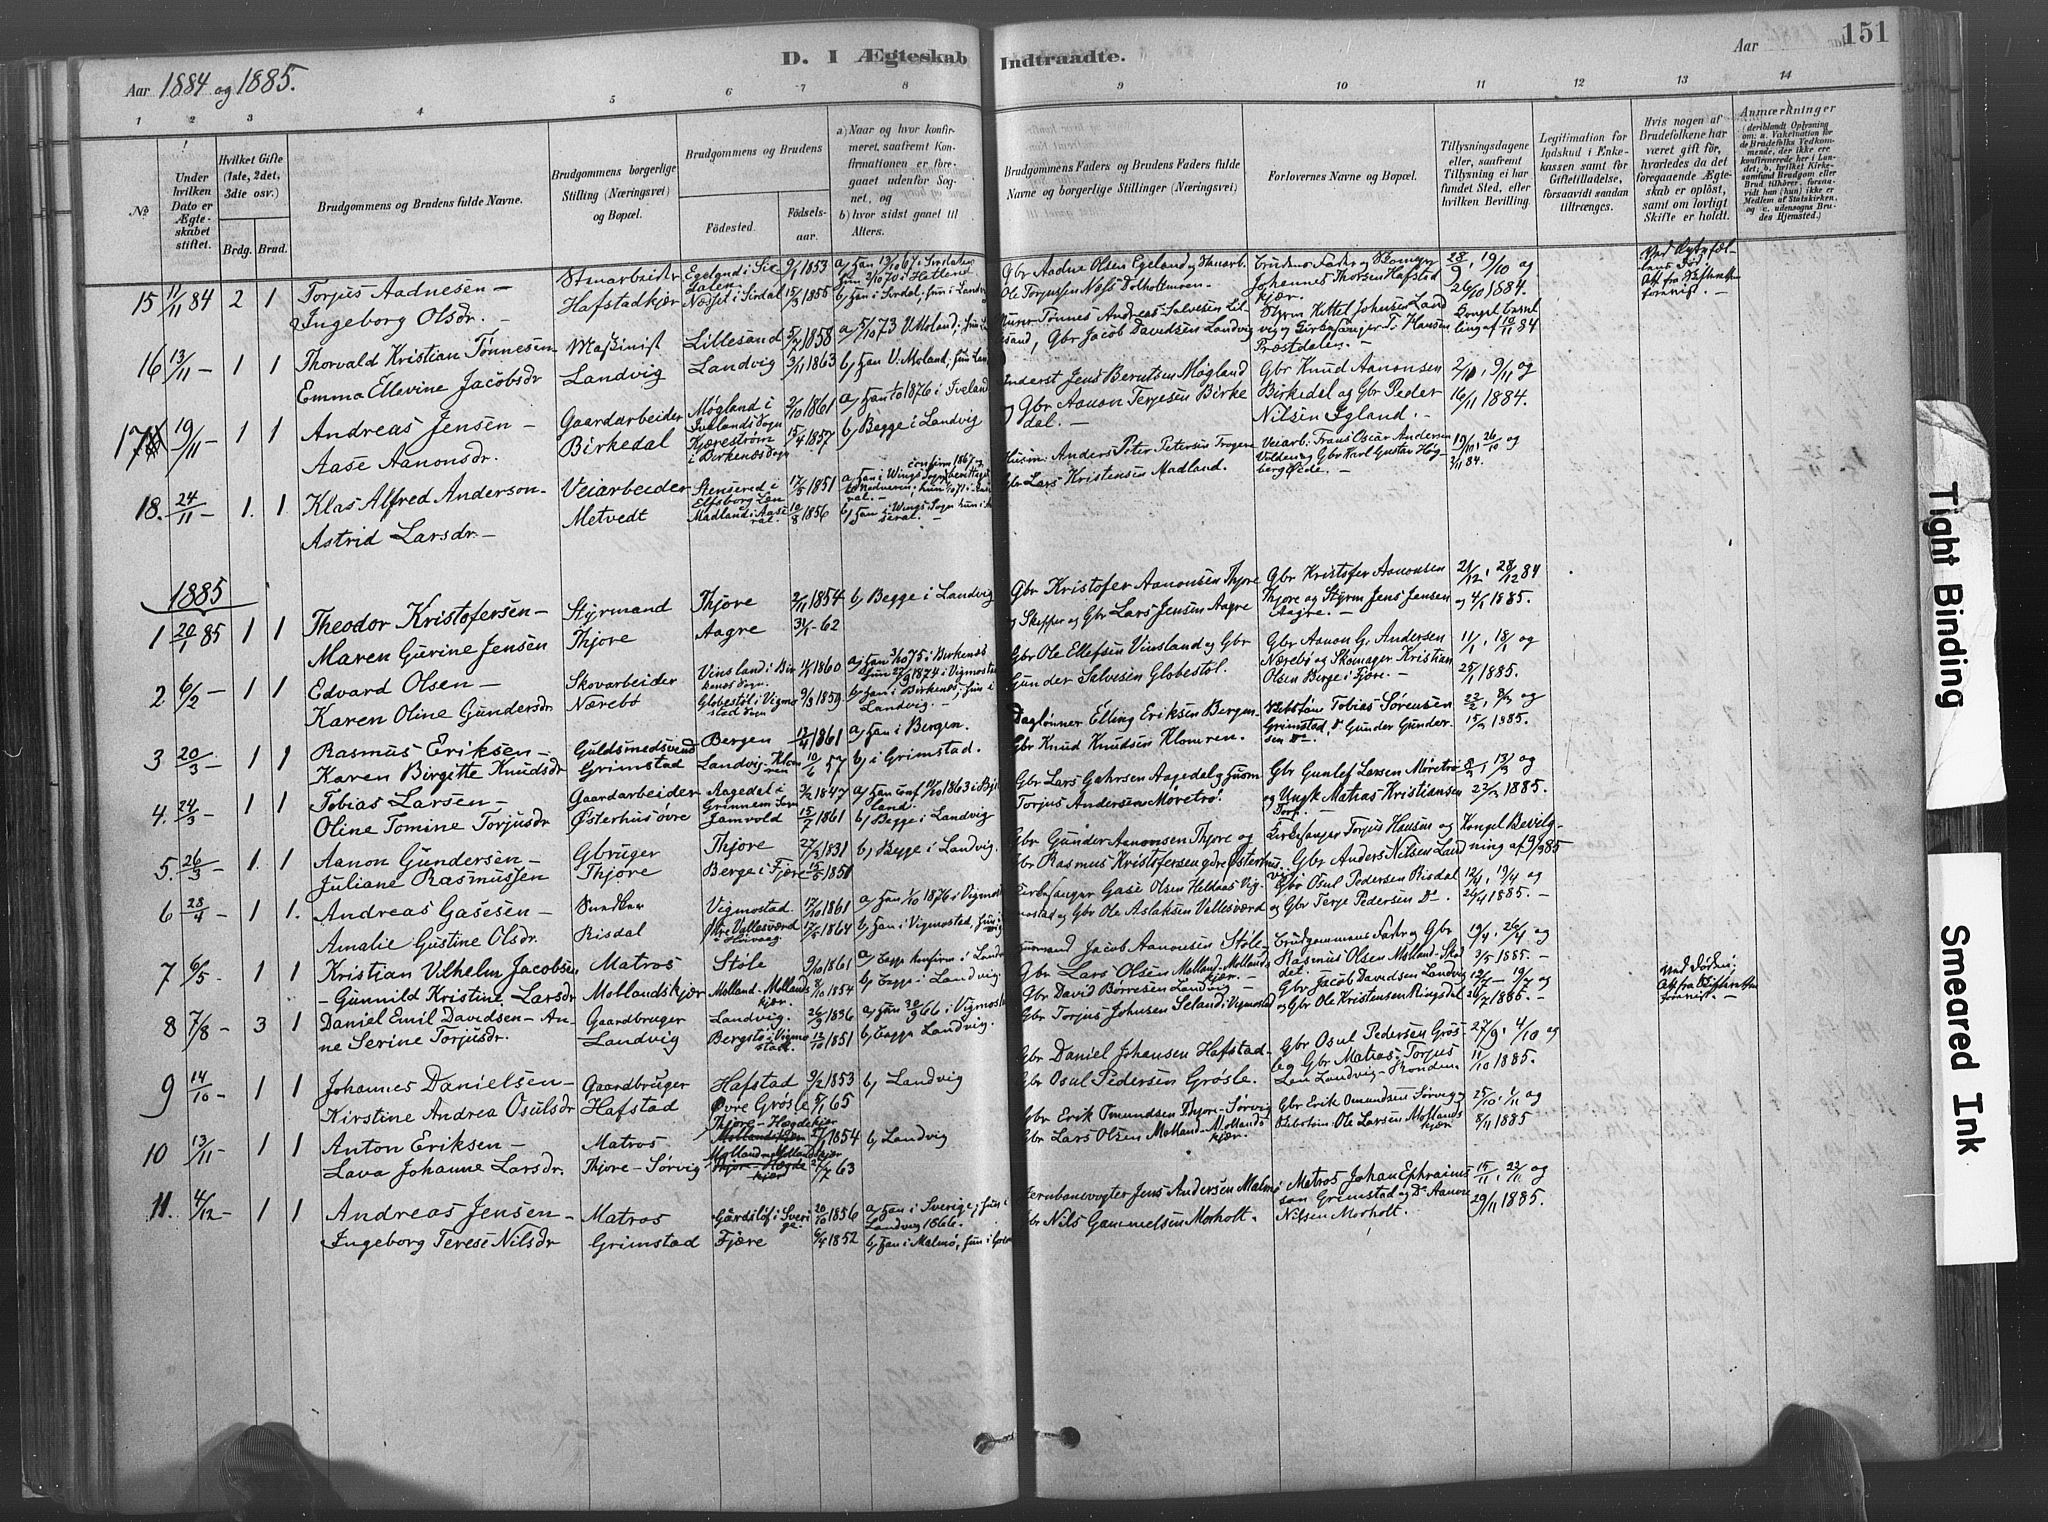 151
D. I Ægteskab Indtraadte.
Aar 1884 og 1885.
Aar
1 2 3 4 5 6 7 8 9 10 11 12 13 14
No.
Under hvilken Dato er Ægteskabet stiftet.
Hvilket Gifte (1ste, 2det, 3die osv.)
Brdg. Brud.
Brudgommens og Brudens fulde Navne.
Brudgommens borgerlige Stilling (Næringsvei) og Bopæl.
Brudgommens og Brudens
Fødested.
Fødselsaar.
a) Naar og hvor konfirmeret, saafremt Konfirmationen er foregaaet udenfor Sognet, og
b) hvor sidst gaaet til Alters.
Brudgommens Faders og Brudens Faders fulde Navne og borgerlige Stillinger (Næringsvei)
Forlovernes Navne og Bopæl.
Tillysningsdagene eller, saafremt Tillysning ei har fundet Sted, efter hvilken Bevilling.
Legitimation for Indskud i Enkekassen samt for Giftetilladelse, forsaavidt saadan tiltrænges.
Hvis nogen af Brudefolkene har været gift før, hvorledes da det foregaaende Ægteskab er opløst, samt om lovligt Skifte er holdt.
Anmærkninger
15 11/11 84 2 1 Torjus Aadnesen – Stenarbeider Egeland i Siredalen 9/1 1853
Ingeborg Olsdr. – Hafstadkjær Nødset i Sirdal 15/3 1855 b, Han i Sirdal, hun i Landvig
Gbr Aadne Olsen Egeland og Stenarb. Ole Torjussen
Brudens Fader og Skomager Johannes Thorsen Hafstadkjær.
28/9, 19/10 og 26/10 1884.
16 13/11 – 1 1 Thorvald Kristian Tønnesen Maskinist Lillesand 5/2 1858 a, 5/10 73 V. Moland,
Emma Ellevine Jacobsdr Landvig Landvig 3/11 1863 b, Han V. Moland, hun Landvig
Murer Tønnes Andreas Salvesen Lillesand, Gbr Jacob Davidsen Landvig
Styrm Kittel Johnsen Landvig og Kirkesanger T. Hansen Præstdalen. –
Kongel. Bevilling af 10/11 84
17 19/11 – 1 1 Andreas Jensen – Gaardarbeider Møgland i Ivelands Sogn 2/10 1861 a, Han 1/10 1876 i Iveland
Aase Aanonsdr. Birkedal Kjærestrøm i Birkenæs Sogn 15/4 1857 b, Begge i Landvig
Inderst Jens Berntsen Møgland og Gbr Aanon Terjesen Birkedal. –
Gbr Knud Aanonsen Birkedal og Gbr Peder Nilsen Igland. –
2/11, 9/11 og 16/11 1884.
18. 24/11 – 1. 1 Klas Alfred Anderson – Veiarbeider Stensered i Elfsborg Len 17/5 1851
Astrid Larsdr. – Metvedt Madland i Aaseral. 10/8 1856
Husm Anders Peter Petersen
Gbr Lars Kristensen Madland.
Veiarb. Frans Oscar Andersen Volden og Gbr Karl Gustav Høgberg Øide.
19/10, 26/10 og 2/11 84.
1885
1 20/1 85 1 1 Theodor Kristofersen – Styrmand Thjore 2/11 1854 b, Begge i Landvig
Maren Gurine Jensen Thjore Aagre 31/1 – 62
Gbr Kristofer Aanonsen Thjore og Skipper og Gbr Lars Jensen Aagre
Gbr Kristofer Aanonsen Thjore og Styrm Jens Jensen Aagre. –
21/12, 28/12 84 og 4/1 1885.
2. 6/2 – 1 1 Edvard Olsen – Skovarbeider Vinsland i Birkenæs Sogn 1860 a, Han 3/10 75 i Birkenæs Hun 27/9 1874 i Vigmostad
Karen Oline Gundersdr Nærebø Globestøl i Vigmostad Sogn 9/3 1859 b, Han i Birkenæs, hun i Landvig. –
Gbr Ole Ellefsen Vinsland og Gbr Gunder Salvesen Globestøl.
Gbr Aanon G. Andersen Nærebø og Skomager Kristian Olsen Berge i Fjære. –
11/1, 18/1 og 25/1 1885.
3 20/3 – 1 1 Rasmus Eriksen – Guldsmedsvend Bergen 12/4 1861 a, Han i Bergen.
Karen Birgitte Knudsdr Grimstad Landvig – Klomren 10/6 57 b, i Grimstad.
Daglønner Elling Eriksen Bergen – Gbr Knud Knudsen Klomren.
Tobias Sørensen Grimstad, Do Gunder Gundersen Do –
22/2, 8/3 og 15/3 1885.
4. 24/3 – 1 1 Tobias Larsen – Gaardarbeider Aagedal i 3/2 1847
Oline Tomine Torjusdr Østerhus øvre 15/7 1861 b, Begge i Landvig
Gbr Lars Aagedal og Husm Torjus Andersen Møretrø.
Gbr Gunlef Larsen Møretrø og Ungk Matias Kristiansen Torp. –
8/3, 15/3 og 22/3 1885.
5. 26/3 – 1. 1 Aanon Gundersen – Gbruger Thjore 27/2 1831 b, Begge i Landvig.
Juliane Rasmussen Thjore Berge i Fjære 15/5 1851
Gbr Gunder Aanonsen Thjore og Gbr Rasmus Kristofersen Østerhus
Kirkesanger Torjus Hansen og Gbr Anders Nilsen Landvig
Kongel Bevilgning af 9/3 85
6 28/4 – 1 1. Andreas Gasesen – Vigmostad 12/10 1861 a, Han 1/10 1876 i Vigmostad
Amalie Gustine Olsdr. Risdal Vallesværd i Høivaag 17/5 1864 b, Han i Vigmostad,
Kirkesanger Gase Olsen Heldaas Vigmostad og Gbr Ole Aslaksen Vallesværd
Gbr Osul Pedersen Risdal og Gbr Terje Pedersen Do. –
12/4, 19/4 og 26/4 1885. –
7 6/5 – 1 1 Kristian Vilhelm Jacobsen Matros Støle 9/10 1861 a, Begge konfirm i Landvig
– Gunnild Kristine Larsdr Mollandskjær Molland – Mollandskjær. 8/10 1854 b, Begge i Landvig
Husmand Jacob Aanonsen Støle – Gbr Lars Olsen Molland – Mollandskjær.
Brudgommens Fader og Gbr Rasmus Olsen Molland –
19/4, 26/4 og 3/5 1885. –
8 7/8 – 3 1 Daniel Emil Davidsen – Anne Serine Torjusdr. Gaardbruger Landvig Landvig. 26/9 1836 a, Han 30/9 66 i Vigmostad
Bergstø i Vigmostad. 12/10 1851 b, Begge Landvig.
Gbr David Børresen Landvig – Gbr Torjus Johnsen Seland i Vigmostad
Gbr Jacob Davidsen Landvig og Gbr Ole Kristensen Ringsdal
12/7 – 19/7 og 26/7 1885. –
9 14/10 – 1 1 Johannes Danielsen – Gaardbruger Hafstad 9/2 1853 b, Landvig
Kirstine Andrea Osulsdr Hafstad Øvre Grøsle 5/1 65
Gbr Daniel Johansen Hafstad – Gbr Osul Pedersen Grøsle.
Gbr Osul Pedersen Grøsle og Gbr Matias Torjusen Landvig –
27/9, 4/10 og 11/10 1885.
10 13/11 – 1 1 Anton Eriksen – Matros Thjore – Høgdekjær 1854 b, Landvig
Lava Johanne Larsdr. Thjore – Sørvig Molland – Mollandskjær 63
Gbr Erik Omundsen Thjore – Sørvig Gbr Lars Olsen Molland – Mollandskjær.
Gbr Erik Omundsen Sørvig og Ole Larsen Mollandskjær
25/10, 1/11 og 8/11 1885
11. 4/12 – 1 1 Andreas Jensen – Matros Gärdslöf i Sverige. 20/10 1856 a, Han i Sverige, hun i Landvig 1866. –
Ingeborg Terese Nilsdr Grimstad Fjære 6/4 1852 b, Han i Malmø, hun i
Jernbanevogter Jens Andersen Malmø Gbr Nils Gammelsen Morholt.
Matros Johan Ephraimsson Grimstad og Do Aanon Nilsen Morholt.
15/11, 22/11 og 29/11 1885.
Tight Binding
Smeared Ink